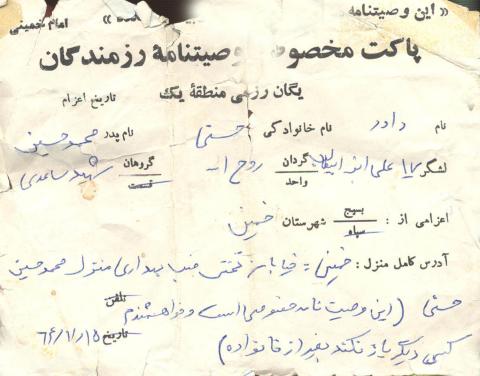 « این وصیتنامه امام خمینی
پاکت مخصوص وصیتنامهٔ رزمندگان
یگان رزمی منطقهٔ یک
تاریخ اعزام
نام داود نام خانوادگی حسنی نام پدر محمدحسین
لشگر ۱۷ علی ابن ابیطالب گردان واحد روح ا... گروهان قسمت شهید ساعدی
اعزامی از : بسیج سپاه شهرستان خمین
آدرس کامل منزل : خمین = خیابان تختی جنب بهداری منزل محمدحسین
حسنی (این وصیت نامه خصوصی است و خواهشمندم تلفن
کسی دیگر باز نکند بغیر از خانواده) تاریخ ۶۶/۱/۱۵